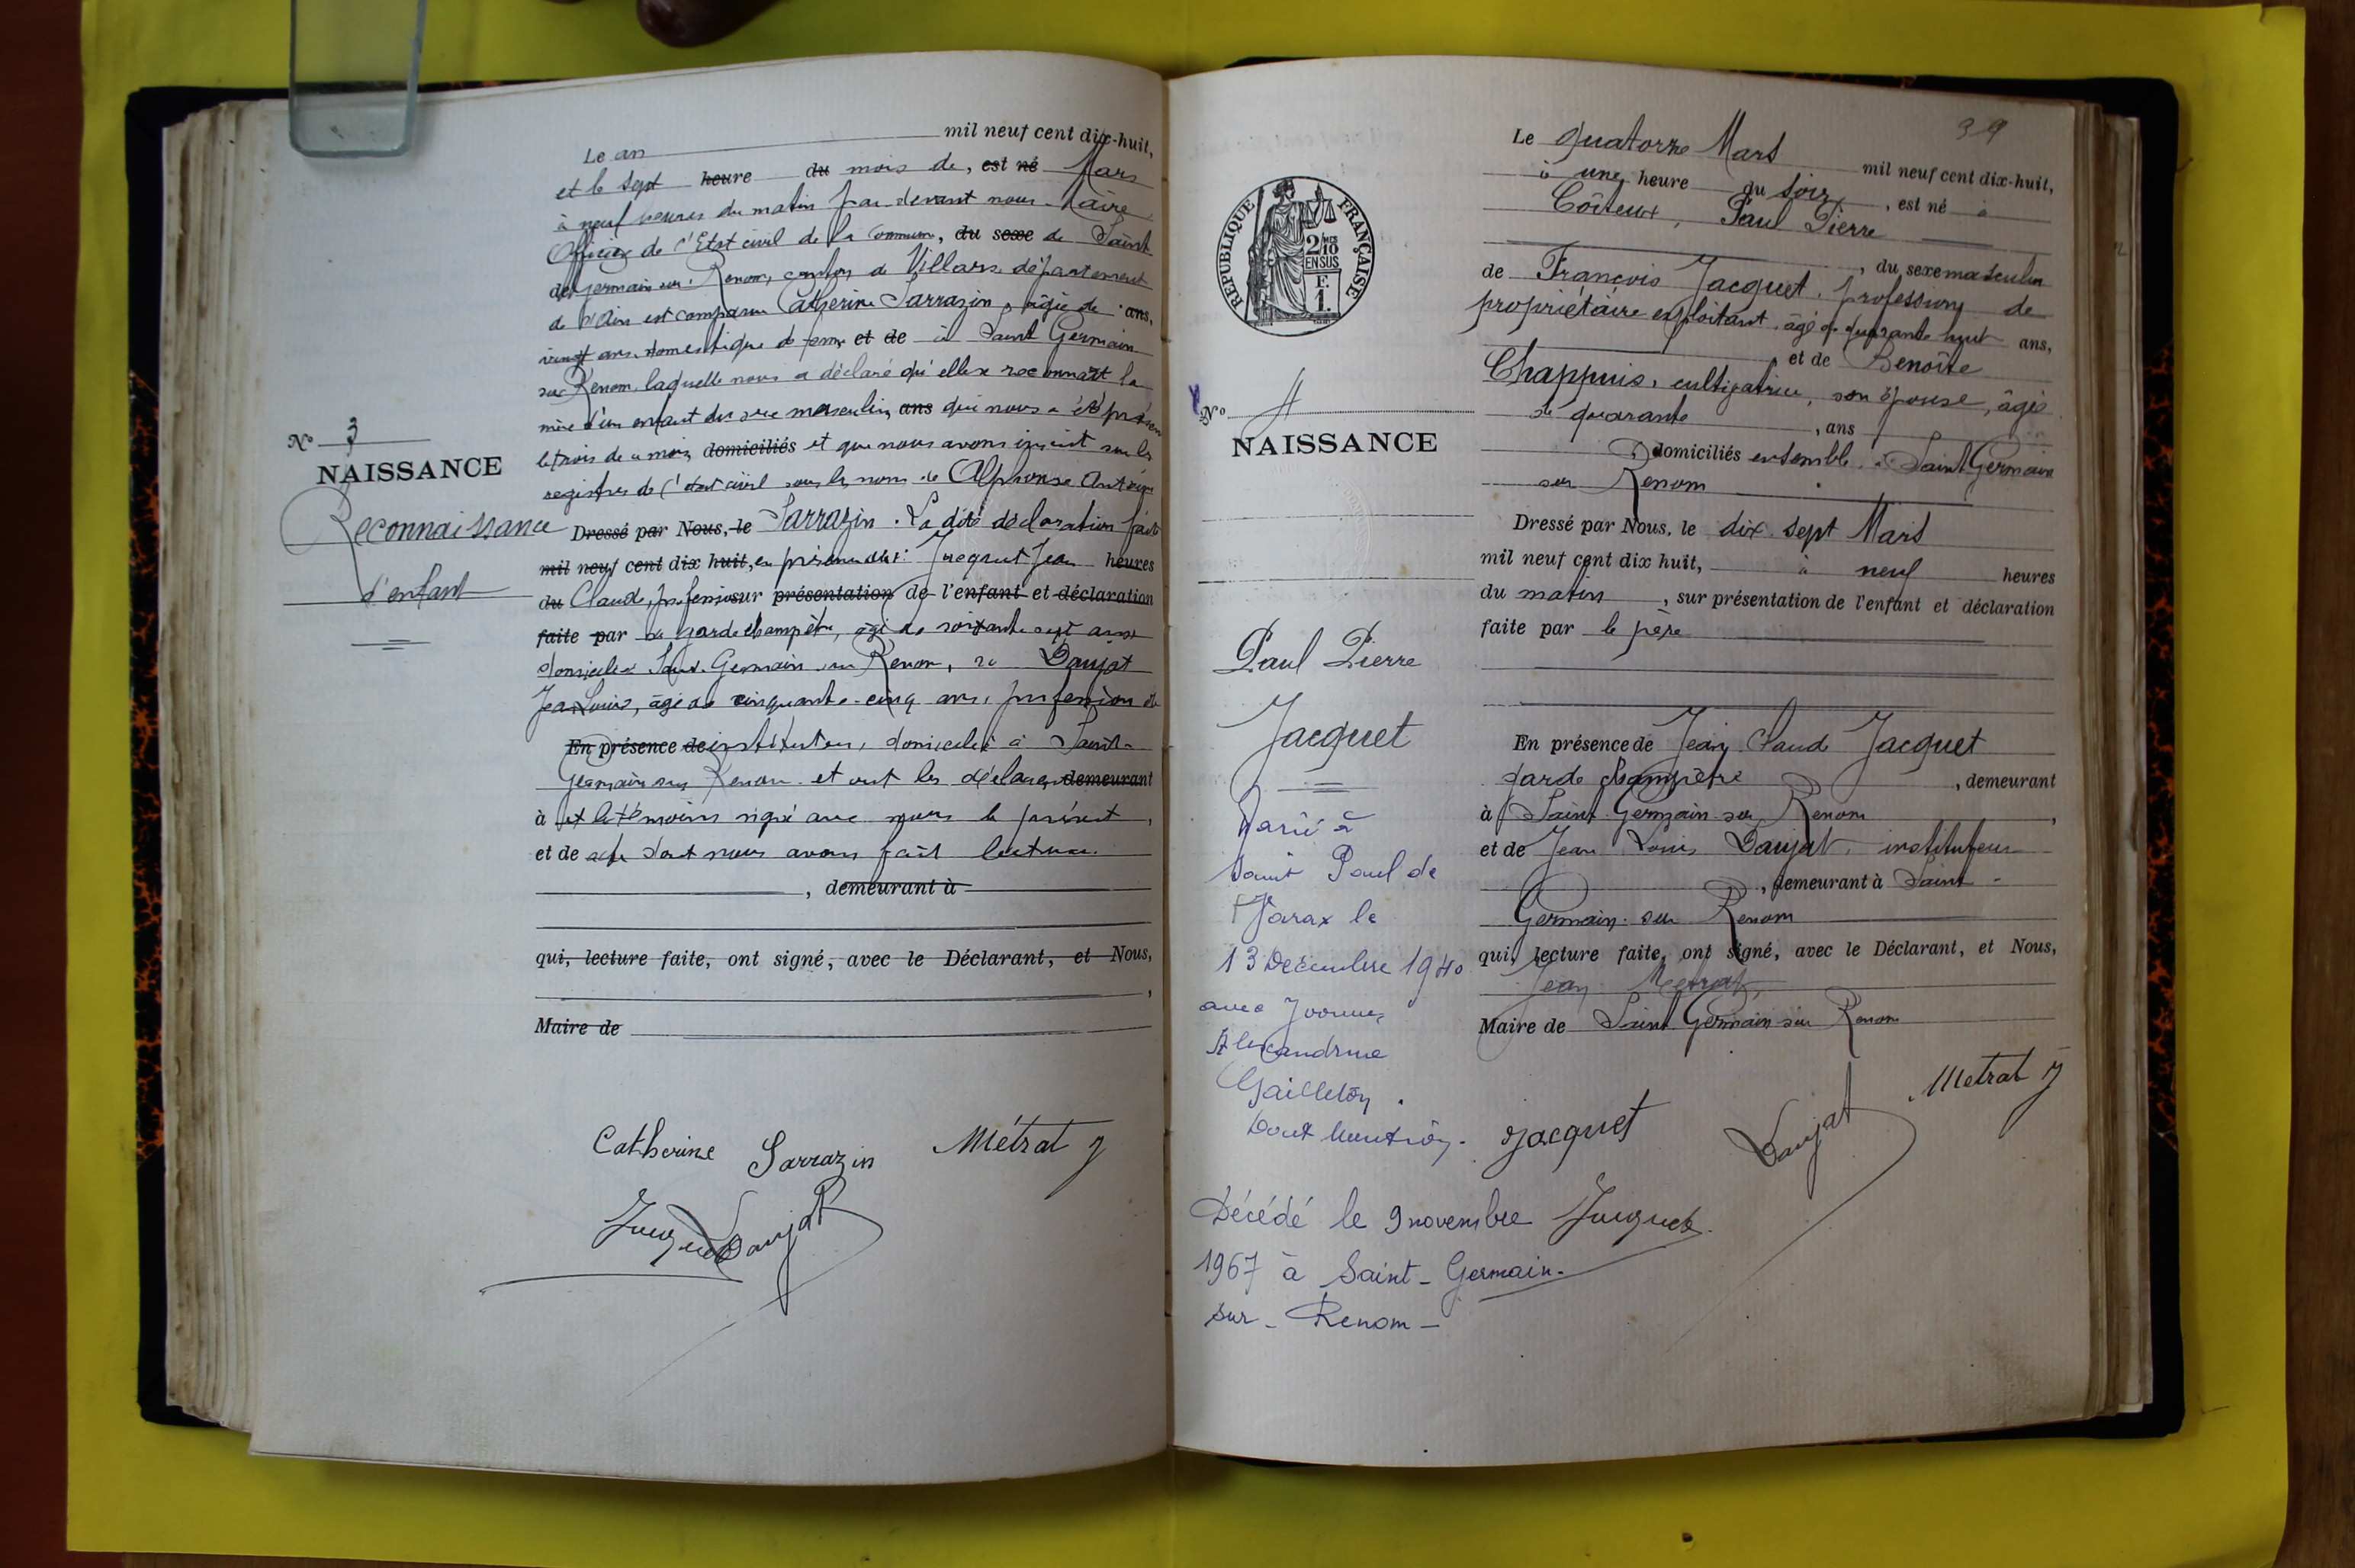 Le an mil neuf cent dix-huit,
et le sept heure du mois de, est né Mars
à neuf heures du matin par devant nous Maire
Officier de l'Etat civil de la commune, du sexe de Saint
de Germain sur Renom, canton de Villars département
de l'Ain est comparue Catherine Sarrazin, âgée de ans,
vingt ans domestique de ferme et de à Saint Germain
sur Renom, laquelle nous a déclaré qu'elle reconnaît la
mère d'un enfant du sexe masculin, ans qui nous a été
le trois de ce mois, domiciliés et que nous avons inscrit sur les
registres de l'état civil sous les noms de Alphonse Antoine
Dressé par Nous, le Sarrazin. La dite déclaration faite
mil neuf cent dix huit, en présence de: Jacquet Jean heures
du Claude, profession sur présentation de l'enfant et déclaration
faite par de garde champêtre, âgé de soixante sept ans
domicilié Saint-Germain sur Renom, Daujat
Jean Louis, âgé de cinquante-cinq ans, profession d'
En présence de instituteur, domicilié à Saint-
Germain sur Renom et ont les demeurant
à et les témoins signé avec nous le présent,
et de acte dont nous avons fait lecture.
, demeurant à
qui, lecture faite, ont signé, avec le Déclarant, et Nous,
,
Maire de
N° 3
NAISSANCE
Reconnaissance
d'enfant
Catherine Sarrazin Métrat J
Jacquet Daujat
39
Le quatorze Mars mil neuf cent dix-huit,
à une heure du soir, est né à
Côiteux, Paul Pierre
, du sexe masculin
de François Jacquet, profession de
propriétaire exploitant, âgé de quarante huit ans,
et de Benoîte
Chappuis, cultivatrice, son épouse, âgée
de quarante, ans
domiciliés ensemble à Saint Germain
sur Renom
Dressé par Nous, le dix-sept Mars
mil neuf cent dix huit, à neuf heures
du matin, sur présentation de l'enfant et déclaration
faite par le père
En présence de Jean Claude Jacquet
garde champêtre, demeurant
à Saint Germain sur Renom,
et de Jean Louis Daujat, instituteur
, demeurant à Saint-
Germain-sur Renom
qui, lecture faite, ont signé, avec le Déclarant, et Nous,
Jean Métrat,
Maire de Saint Germain sur Renom
RÉPUBLIQUE FRANÇAISE
2/10
EN SUS
N° 4
NAISSANCE
Paul Pierre
Jacquet
Marié à
Saint Paul de
Varax le
13 Décembre 1940
avec Yvonne,
Alexandrine
Gailleton.
Dont Mention.
Jacquet Daujat Métrat J
Jacquet
Décédé le 9 novembre
1967 à Saint-Germain-
sur-Renom-